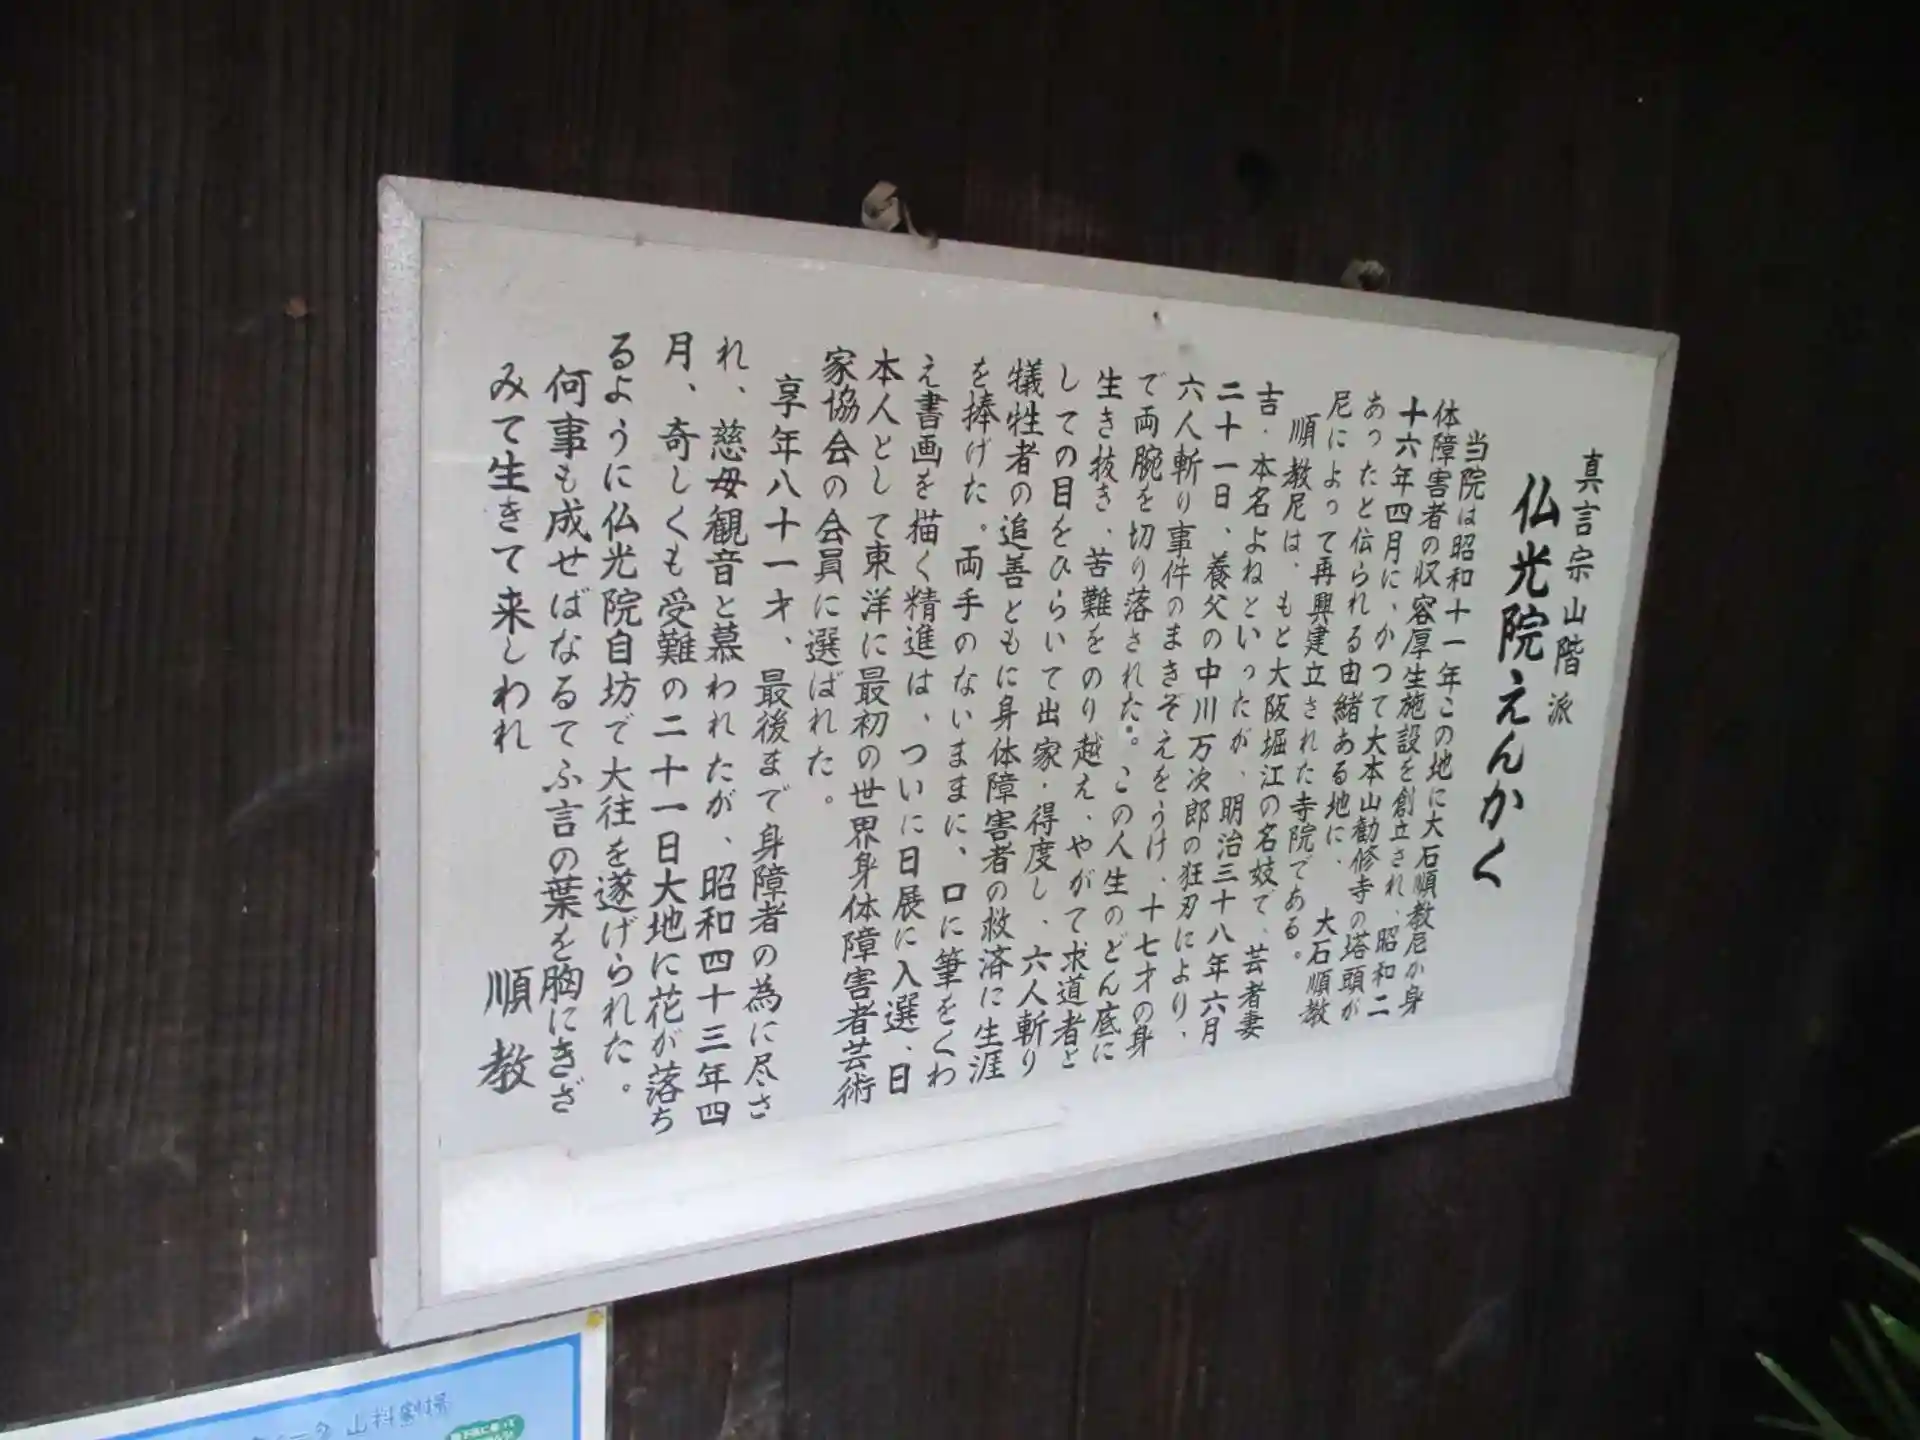 真言宗山階派
仏光院えんかく
当院は昭和十一年この地に大石順教尼が身
体障害者の収容厚生施設を創立され、昭和二
十六年四月に、かつて大本山勧修寺の塔頭が
あったと伝られる由緒ある地に、大石順教
尼によって再興建立された寺院である。
順教尼は、もと大阪堀江の名妓で、芸者妻
吉・本名よねといったが、明治三十八年六月
二十一日、養父の中川万次郎の狂刃により、
六人斬り事件のまきぞえをうけ、十七才の身
で両腕を切り落された。この人生のどん底に
生き抜き、苦難をのり越え、やがて求道者と
しての目をひらいて出家・得度し、六人斬り
犠牲者の追善ともに身体障害者の救済に生涯
を捧げた。両手のないままに、口に筆をくわ
え書画を描く精進は、ついに日展に入選、日
本人として東洋に最初の世界身体障害者芸術
家協会の会員に選ばれた。
享年八十一才、最後まで身障者の為に尽さ
れ、慈母観音と慕われたが、昭和四十三年四
月、奇しくも受難の二十一日大地に花が落ち
るように仏光院自坊で大往を遂げられた。
何事も成せばなるてふ言の葉を胸にきざ
みて生きて来しわれ
順教
山科劇場